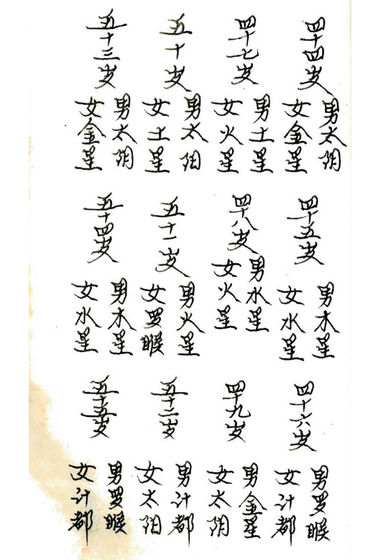 四十四岁
男太阴
女金星
四十五岁
男木星
女水星
四十六岁
男罗睺
女计都
四十七岁
男土星
女火星
四十八岁
男水星
女火星
四十九岁
男金星
女太阴
五十岁
男太阳
女土星
五十一岁
男火星
女罗睺
五十二岁
男计都
女太阳
五十三岁
男太阴
女金星
五十四岁
男木星
女水星
五十五岁
男罗睺
女计都